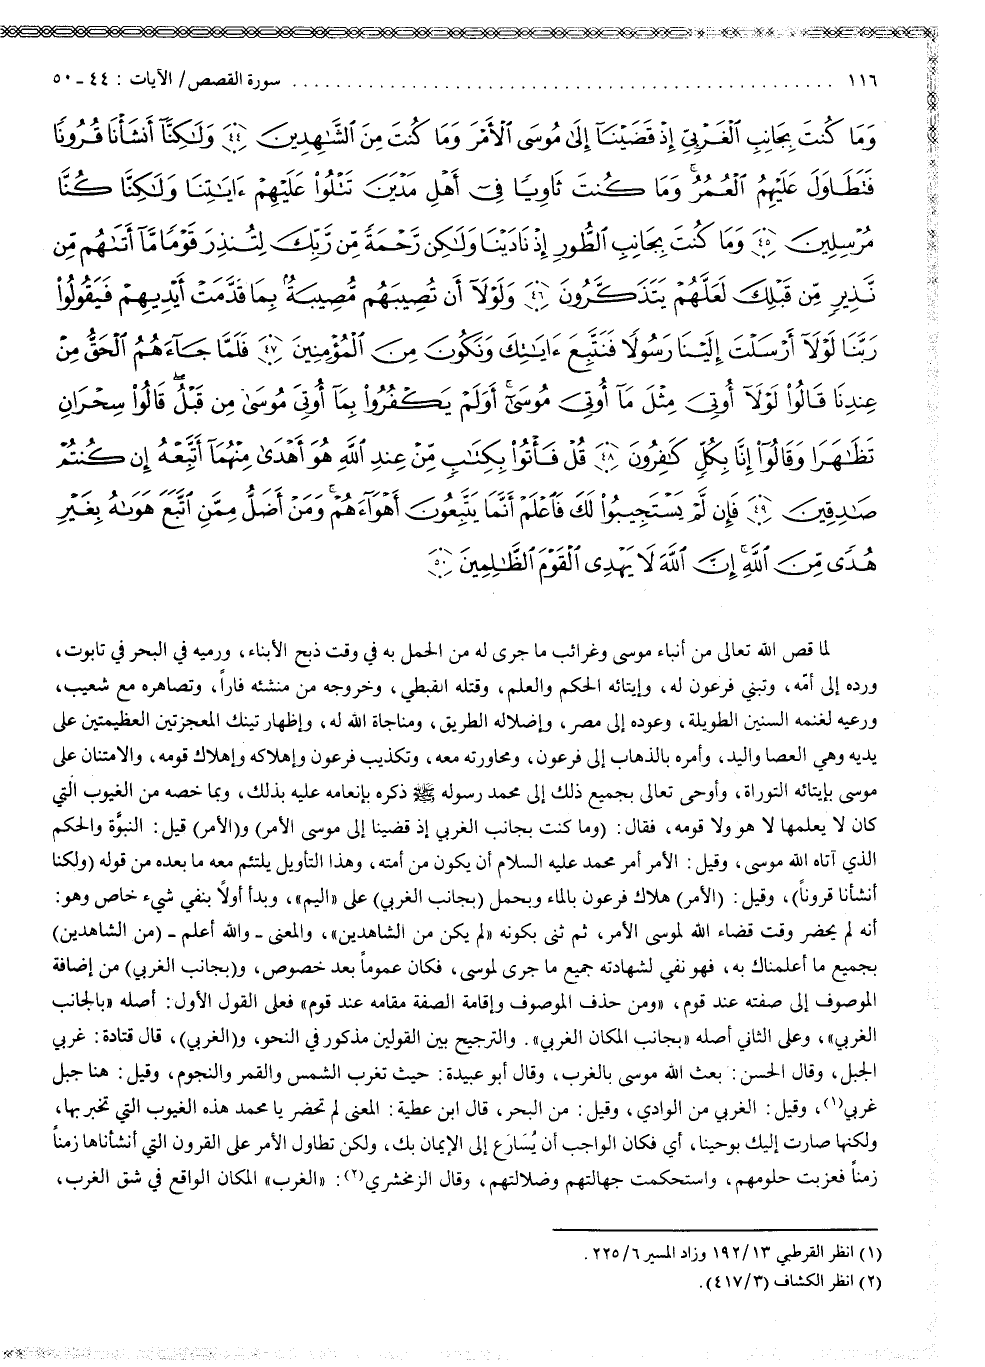 ١١٦ ........................................ سورة القصص/ الآيات : ٤٤ ـ ٥٠
وَمَا كُنتَ بِجَانِبِ ٱلْغَرْبِيِّ إِذْ قَضَيْنَآ إِلَىٰ مُوسَى ٱلْأَمْرَ وَمَا كُنتَ مِنَ ٱلشَّٰهِدِينَ ﴿٤٤﴾ وَلَٰكِنَّآ أَنشَأْنَا قُرُونًا
فَتَطَاوَلَ عَلَيْهِمُ ٱلْعُمُرُ ۚ وَمَا كُنتَ ثَاوِيًا فِىٓ أَهْلِ مَدْيَنَ تَتْلُوا۟ عَلَيْهِمْ ءَايَٰتِنَا وَلَٰكِنَّا كُنَّا
مُرْسِلِينَ ﴿٤٥﴾ وَمَا كُنتَ بِجَانِبِ ٱلطُّورِ إِذْ نَادَيْنَا وَلَٰكِن رَّحْمَةً مِّن رَّبِّكَ لِتُنذِرَ قَوْمًا مَّآ أَتَىٰهُم مِّن
نَّذِيرٍ مِّن قَبْلِكَ لَعَلَّهُمْ يَتَذَكَّرُونَ ﴿٤٦﴾ وَلَوْلَآ أَن تُصِيبَهُم مُّصِيبَةٌۢ بِمَا قَدَّمَتْ أَيْدِيهِمْ فَيَقُولُوا۟
رَبَّنَا لَوْلَآ أَرْسَلْتَ إِلَيْنَا رَسُولًا فَنَتَّبِعَ ءَايَٰتِكَ وَنَكُونَ مِنَ ٱلْمُؤْمِنِينَ ﴿٤٧﴾ فَلَمَّا جَآءَهُمُ ٱلْحَقُّ مِنْ
عِندِنَا قَالُوا۟ لَوْلَآ أُوتِىَ مِثْلَ مَآ أُوتِىَ مُوسَىٰٓ ۚ أَوَلَمْ يَكْفُرُوا۟ بِمَآ أُوتِىَ مُوسَىٰ مِن قَبْلُ ۖ قَالُوا۟ سِحْرَانِ
تَظَٰهَرَا وَقَالُوٓا۟ إِنَّا بِكُلٍّ كَٰفِرُونَ ﴿٤٨﴾ قُلْ فَأْتُوا۟ بِكِتَٰبٍ مِّنْ عِندِ ٱللَّهِ هُوَ أَهْدَىٰ مِنْهُمَآ أَتَّبِعْهُ إِن كُنتُمْ
صَٰدِقِينَ ﴿٤٩﴾ فَإِن لَّمْ يَسْتَجِيبُوا۟ لَكَ فَٱعْلَمْ أَنَّمَا يَتَّبِعُونَ أَهْوَآءَهُمْ ۚ وَمَنْ أَضَلُّ مِمَّنِ ٱتَّبَعَ هَوَىٰهُ بِغَيْرِ
هُدًى مِّنَ ٱللَّهِ ۚ إِنَّ ٱللَّهَ لَا يَهْدِى ٱلْقَوْمَ ٱلظَّٰلِمِينَ ﴿٥٠﴾
لما قص الله تعالى من أنباء موسى وغرائب ما جرى له من الحمل به في وقت ذبح الأبناء، ورميه في البحر في تابوت،
ورده إلى أمّه، وتبني فرعون له، وإيتائه الحكم والعلم، وقتله القبطي، وخروجه من منشئه فاراً، وتصاهره مع شعيب،
ورعيه لغنمه السنين الطويلة، وعوده إلى مصر، وإضلاله الطريق، ومناجاة الله له، وإظهار تينك المعجزتين العظيمتين على
يديه وهي العصا واليد، وأمره بالذهاب إلى فرعون، ومحاورته معه، وتكذيب فرعون وإهلاكه وإهلاك قومه، والامتنان على
موسى بإيتائه التوراة، وأوحى تعالى بجميع ذلك إلى محمد رسوله ﷺ ذكره بإنعامه عليه بذلك، وبما خصه من الغيوب التي
كان لا يعلمها لا هو ولا قومه، فقال: (وما كنت بجانب الغربي إذ قضينا إلى موسى الأمر) و(الأمر) قيل: النبوَّة والحكم
الذي آتاه الله موسى، وقيل: الأمر أمر محمد عليه السلام أن يكون من أمته، وهذا التأويل يلتئم معه ما بعده من قوله (ولكنا
أنشأنا قروناً)، وقيل: (الأمر) هلاك فرعون بالماء ويحمل (بجانب الغربي) على «اليم»، وبدأ أولاً بنفي شيء خاص وهو:
أنه لم يحضر وقت قضاء الله لموسى الأمر، ثم ثنى بكونه «لم يكن من الشاهدين»، والمعنى ـ والله أعلم ـ (من الشاهدين)
بجميع ما أعلمناك به، فهو نفي لشهادته جميع ما جرى لموسى، فكان عموماً بعد خصوص، و(بجانب الغربي) من إضافة
الموصوف إلى صفته عند قوم، «ومن حذف الموصوف وإقامة الصفة مقامه عند قوم» فعلى القول الأول: أصله «بالجانب
الغربي»، وعلى الثاني أصله «بجانب المكان الغربي». والترجيح بين القولين مذكور في النحو، و(الغربي)، قال قتادة: غربي
الجبل، وقال الحسن: بعث الله موسى بالغرب، وقال أبو عبيدة: حيث تغرب الشمس والقمر والنجوم، وقيل: هنا جبل
غربي(١)، وقيل: الغربي من الوادي، وقيل: من البحر، قال ابن عطية: المعنى لم تحضر يا محمد هذه الغيوب التي تخبر بها،
ولكنها صارت إليك بوحينا، أي فكان الواجب أن يُسَارَع إلى الإيمان بك، ولكن تطاول الأمر على القرون التي أنشأناها زمناً
زمناً فعزبت حلومهم، واستحكمت جهالتهم وضلالتهم، وقال الزمخشري(٢): «الغرب» المكان الواقع في شق الغرب،
(١) انظر القرطبي ١٩٢/١٣ وزاد المسير ٢٢٥/٦.
(٢) انظر الكشاف (٤١٧/٣).